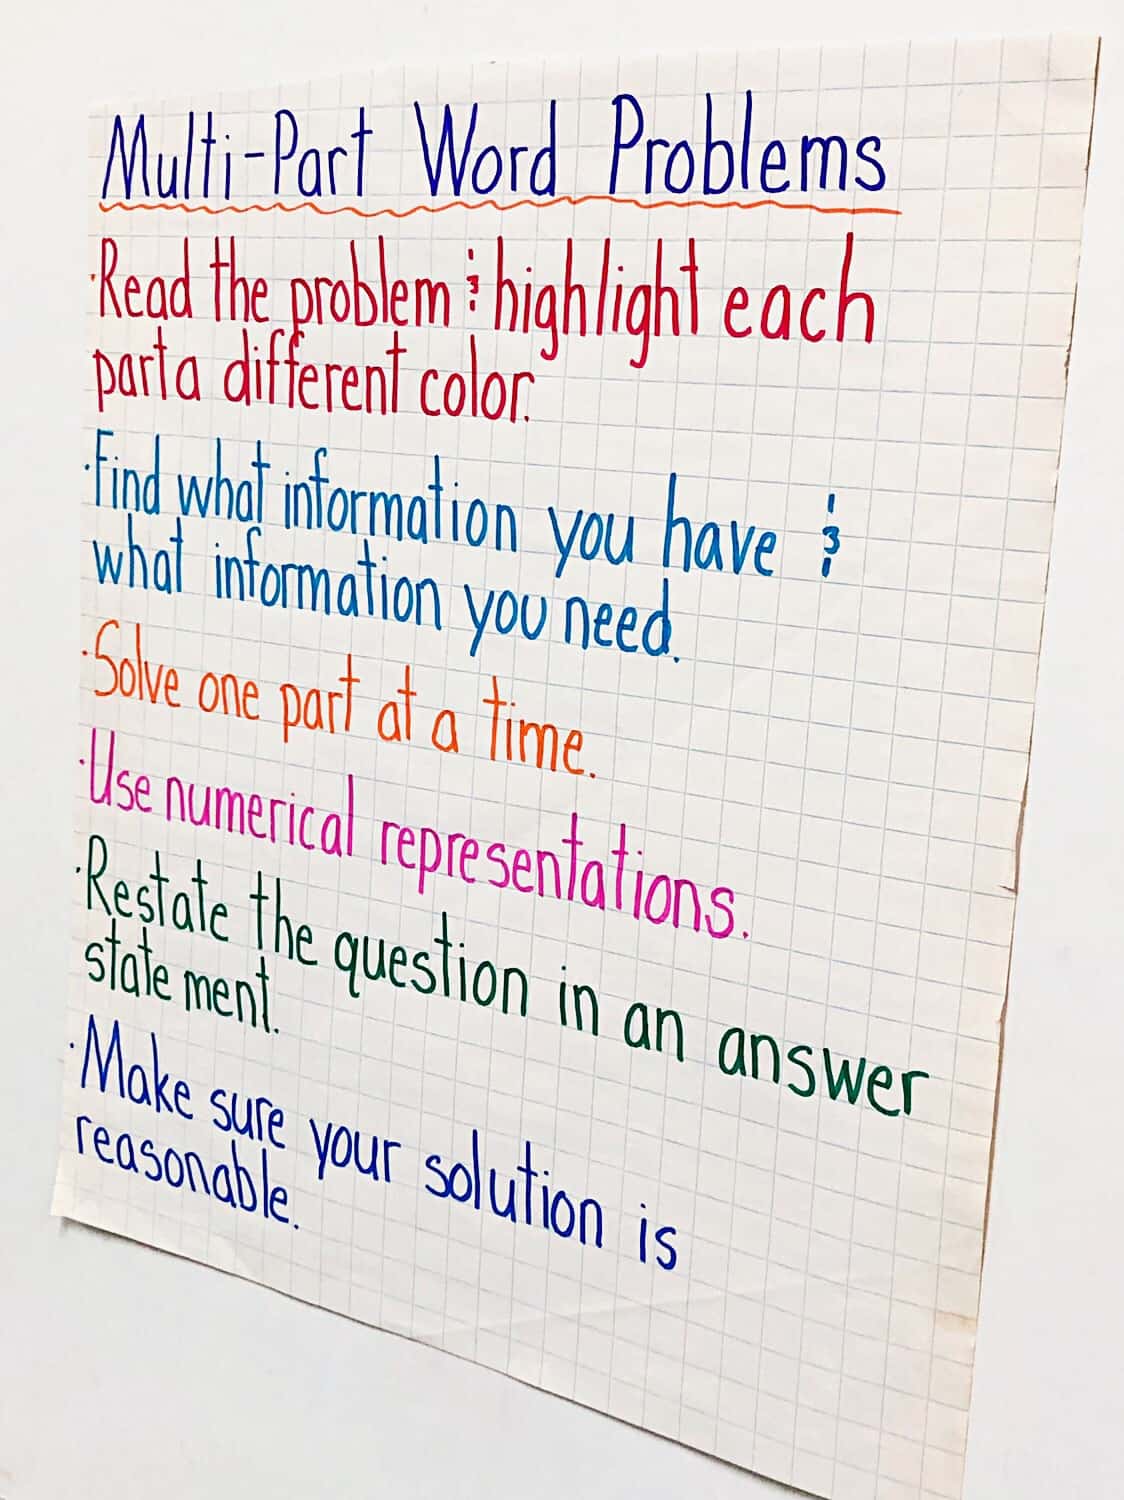 Multi-Part Word Problems
·Read the problem & highlight each
part a different color.
·Find what information you have &
what information you need.
·Solve one part at a time.
·Use numerical representations.
·Restate the question in an answer
statement.
·Make sure your solution is
reasonable.